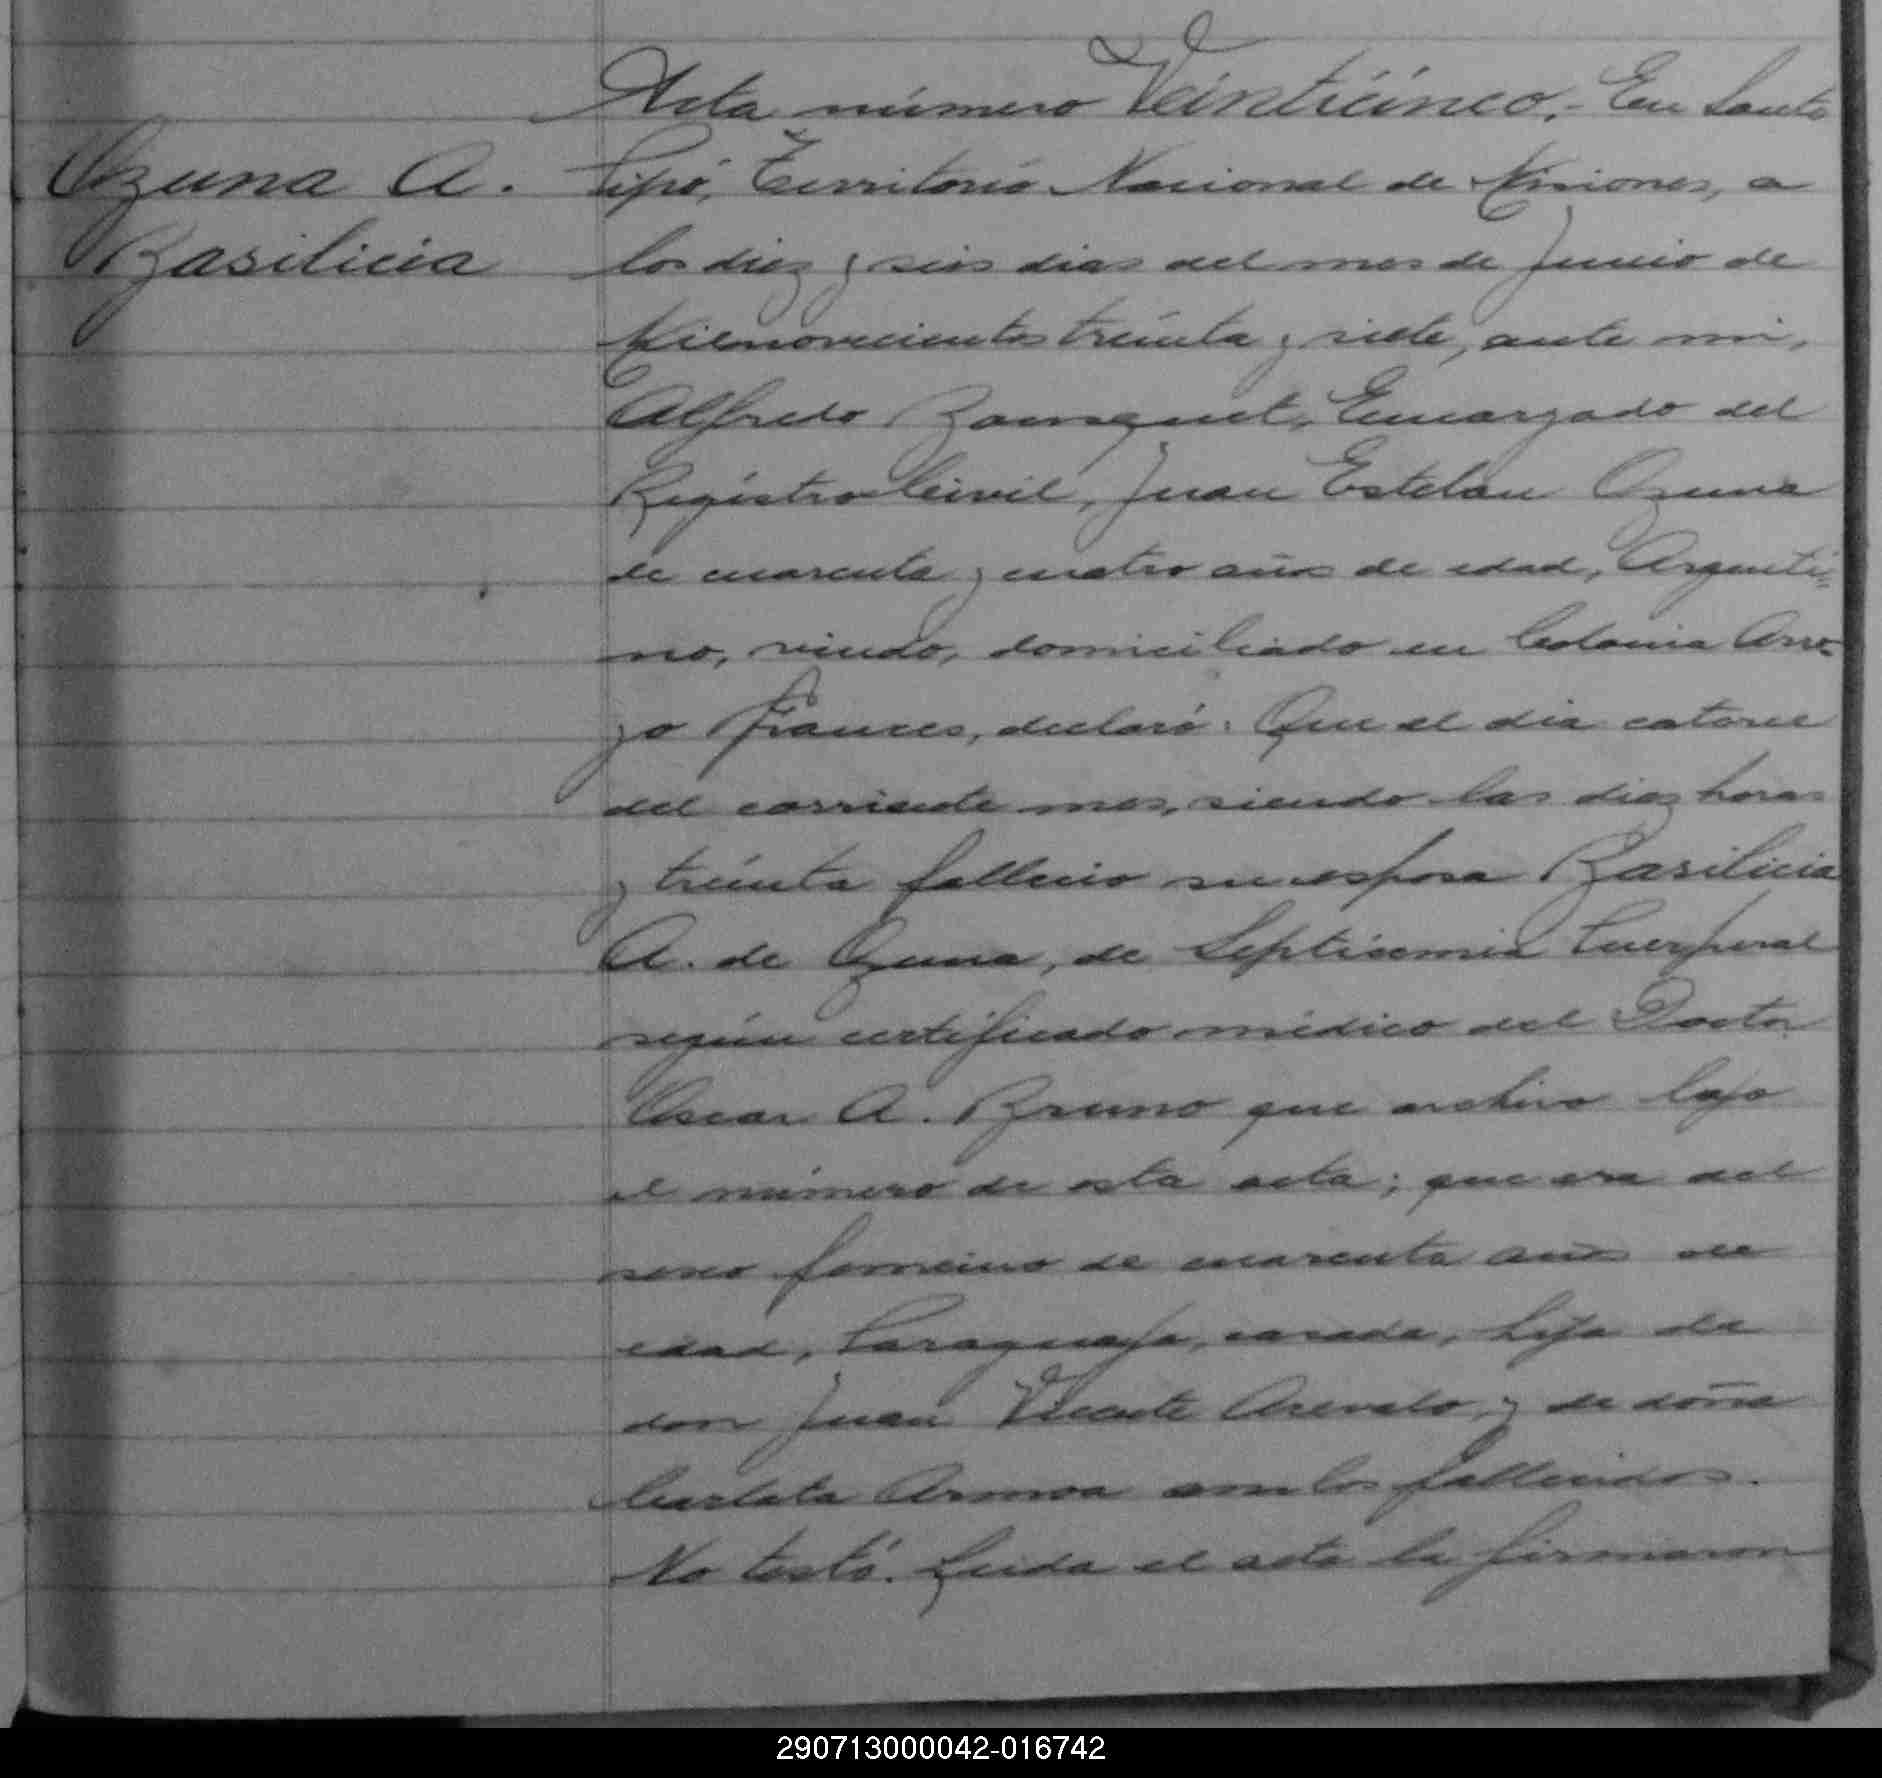 Acta número Veinticinco.- En Santo
Ozuna A.
Pipó, Territorio Nacional de Misiones, a
Basilicia
los diez y seis dias del mes de Junio de
Milnovecientos treinta y siete, ante mi,
Alfredo Encargado del
Registro Civil, Juan Esteban Ozuna
de cuarenta y cuatro años de edad, Argenti=
no, viudo, domiciliado en Colonia Arro=
yo Frances, declaró: Que el dia catorce
del corriente mes, siendo las diez horas
y treinta fallecio su esposa Basilicia
A. de Ozuna, de Septicemia Puerperal
según certificado médico del Doctor
Oscar A. Bruno que archivo bajo
el número de esta acta; que era del
sexo femeino de cuarenta años de
edad, Paraguaya, casada, hija de
don Juan Vicente Arevalo, y de doña
Carlota Armoa ambos fallecidos.
No testó. Leida el acta la firmaron
290713000042-016742